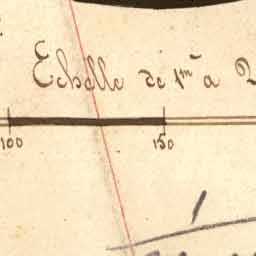 Echelle de 1m à 2
100 150